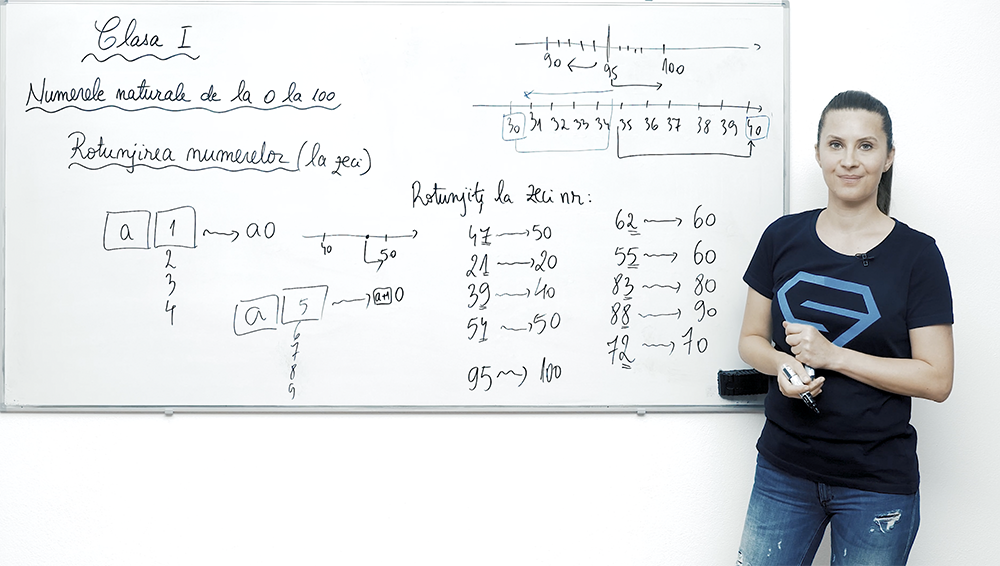 Clasa I
Numerele naturale de la 0 la 100
Rotunjirea numerelor (la zeci)
90 95 100
30 31 32 33 34 35 36 37 38 39 40
a 1 → a0
2
3
4
40 50
a 5 → a+1 0
6
7
8
9
Rotunjiți la zeci nr:
47 → 50
21 → 20
39 → 40
51 → 50
95 → 100
62 → 60
55 → 60
83 → 80
88 → 90
72 → 70